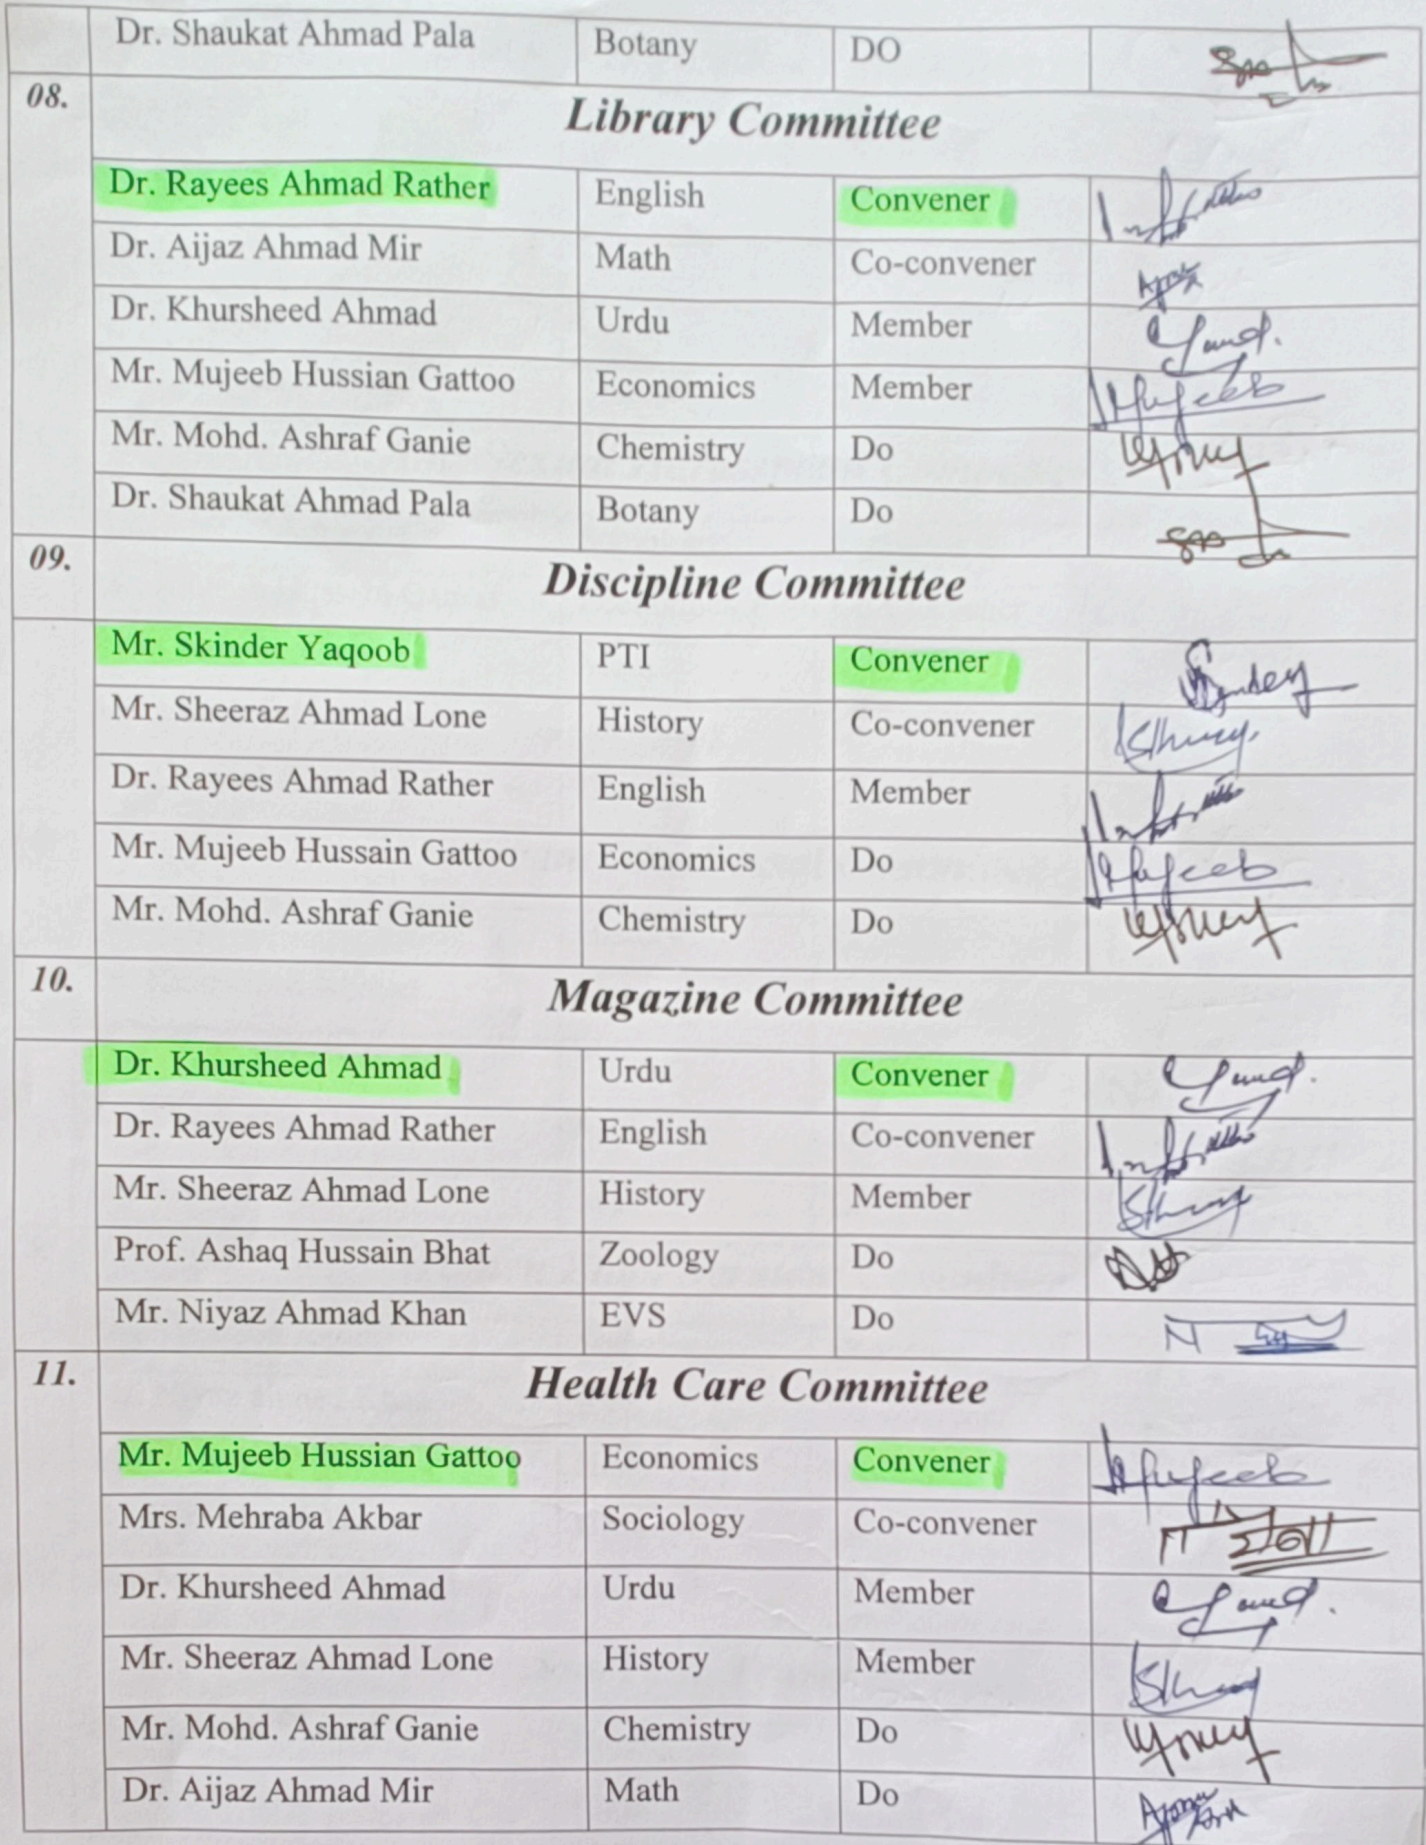 Dr. Shaukat Ahmad Pala Botany DO
08. Library Committee
Dr. Rayees Ahmad Rather English Convener
Dr. Aijaz Ahmad Mir Math Co-convener
Dr. Khursheed Ahmad Urdu Member
Mr. Mujeeb Hussian Gattoo Economics Member Mujeeb
Mr. Mohd. Ashraf Ganie Chemistry Do
Dr. Shaukat Ahmad Pala Botany Do
09. Discipline Committee
Mr. Skinder Yaqoob PTI Convener
Mr. Sheeraz Ahmad Lone History Co-convener
Dr. Rayees Ahmad Rather English Member
Mr. Mujeeb Hussain Gattoo Economics Do Mujeeb
Mr. Mohd. Ashraf Ganie Chemistry Do
10. Magazine Committee
Dr. Khursheed Ahmad Urdu Convener
Dr. Rayees Ahmad Rather English Co-convener
Mr. Sheeraz Ahmad Lone History Member
Prof. Ashaq Hussain Bhat Zoology Do
Mr. Niyaz Ahmad Khan EVS Do
11. Health Care Committee
Mr. Mujeeb Hussian Gattoo Economics Convener Mujeeb
Mrs. Mehraba Akbar Sociology Co-convener
Dr. Khursheed Ahmad Urdu Member
Mr. Sheeraz Ahmad Lone History Member
Mr. Mohd. Ashraf Ganie Chemistry Do
Dr. Aijaz Ahmad Mir Math Do